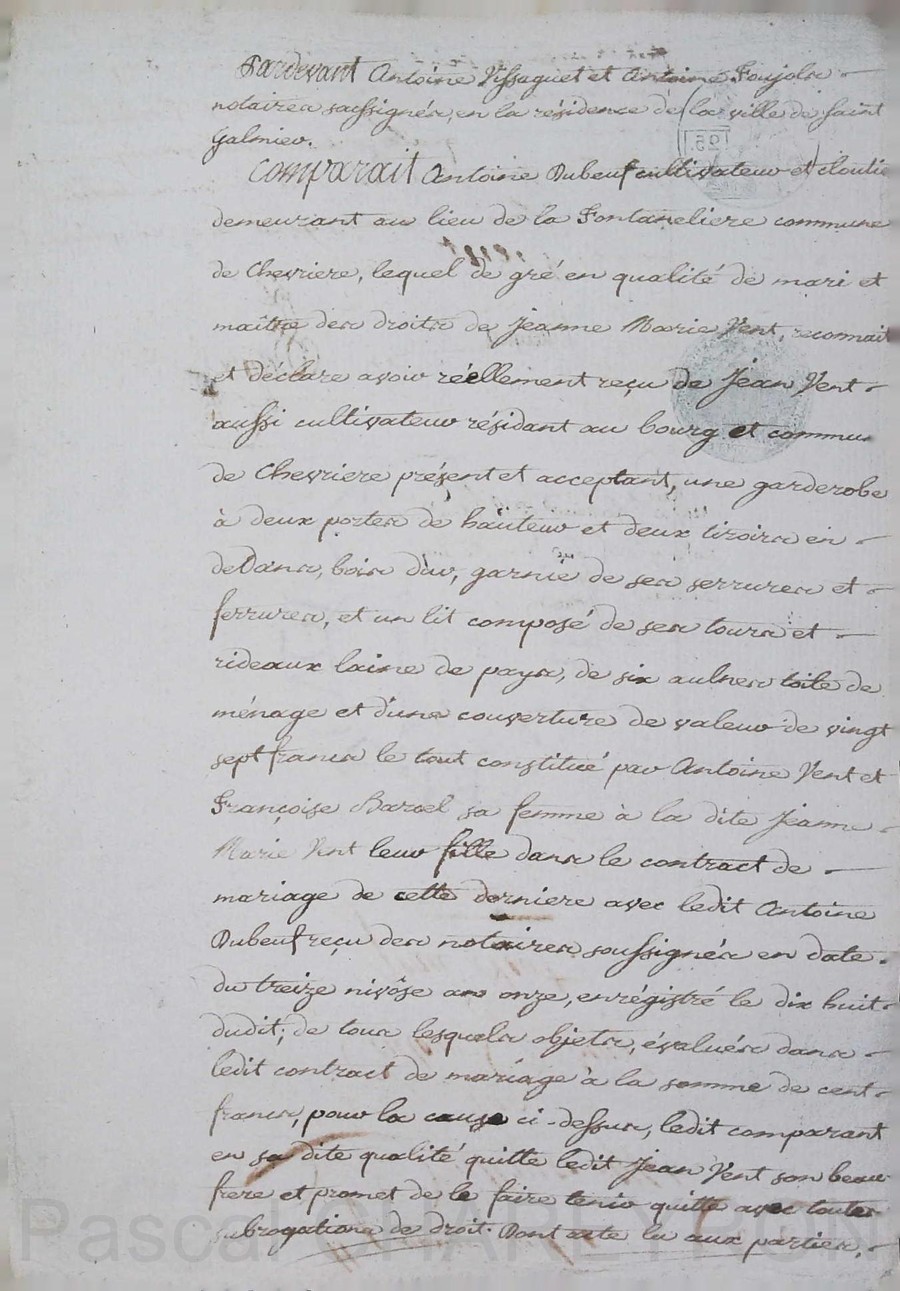 Pardevant Antoine Vissaguet et Antoine Foujols
notaires soussignés, en la résidence de la ville de saint
Galmier.
Comparait Antoine Dubeuf cultivateur et cloutie
demeurant au lieu de la Fontaneliere commune
de Chevriere, lequel de gré en qualité de mari et
maître des droits de Jeanne Marie Vent, reconnait
et déclare avoir réellement reçu de Jean Vent
aussi cultivateur résidant au bourg et commu
de Chevriere présent et acceptant, une garderobe
à deux portes de haüteur et deux tiroirs en
dedans, bois dur, garnie de ses serrures et
ferrures, et un lit composé de ses tours et
rideaux laine de pays, de six aulnes toile de
ménage et d'une couverture de valeur de vingt
sept francs le tout constitué par Antoine Vent et
Françoise Barcel sa femme à la dite Jeanne
Marie Vent leur fille dans le contract de
mariage de cette derniere avec ledit Antoine
Dubeuf reçu des notaires soussignés en date
du treize nivôse an onze, enrégistré le dix huit
dudit; de tous lesquels objets, évalués dans
ledit contract de mariage à la somme de cent
francs, pour la cause ci-dessus, ledit comparant
en sa dite qualité quitte ledit Jean Vent son beau
frere et promet de le faire tenir quitte avec toutes
subrogations de droit. Dont acte lu aux parties.
Pascal CHARLYRON